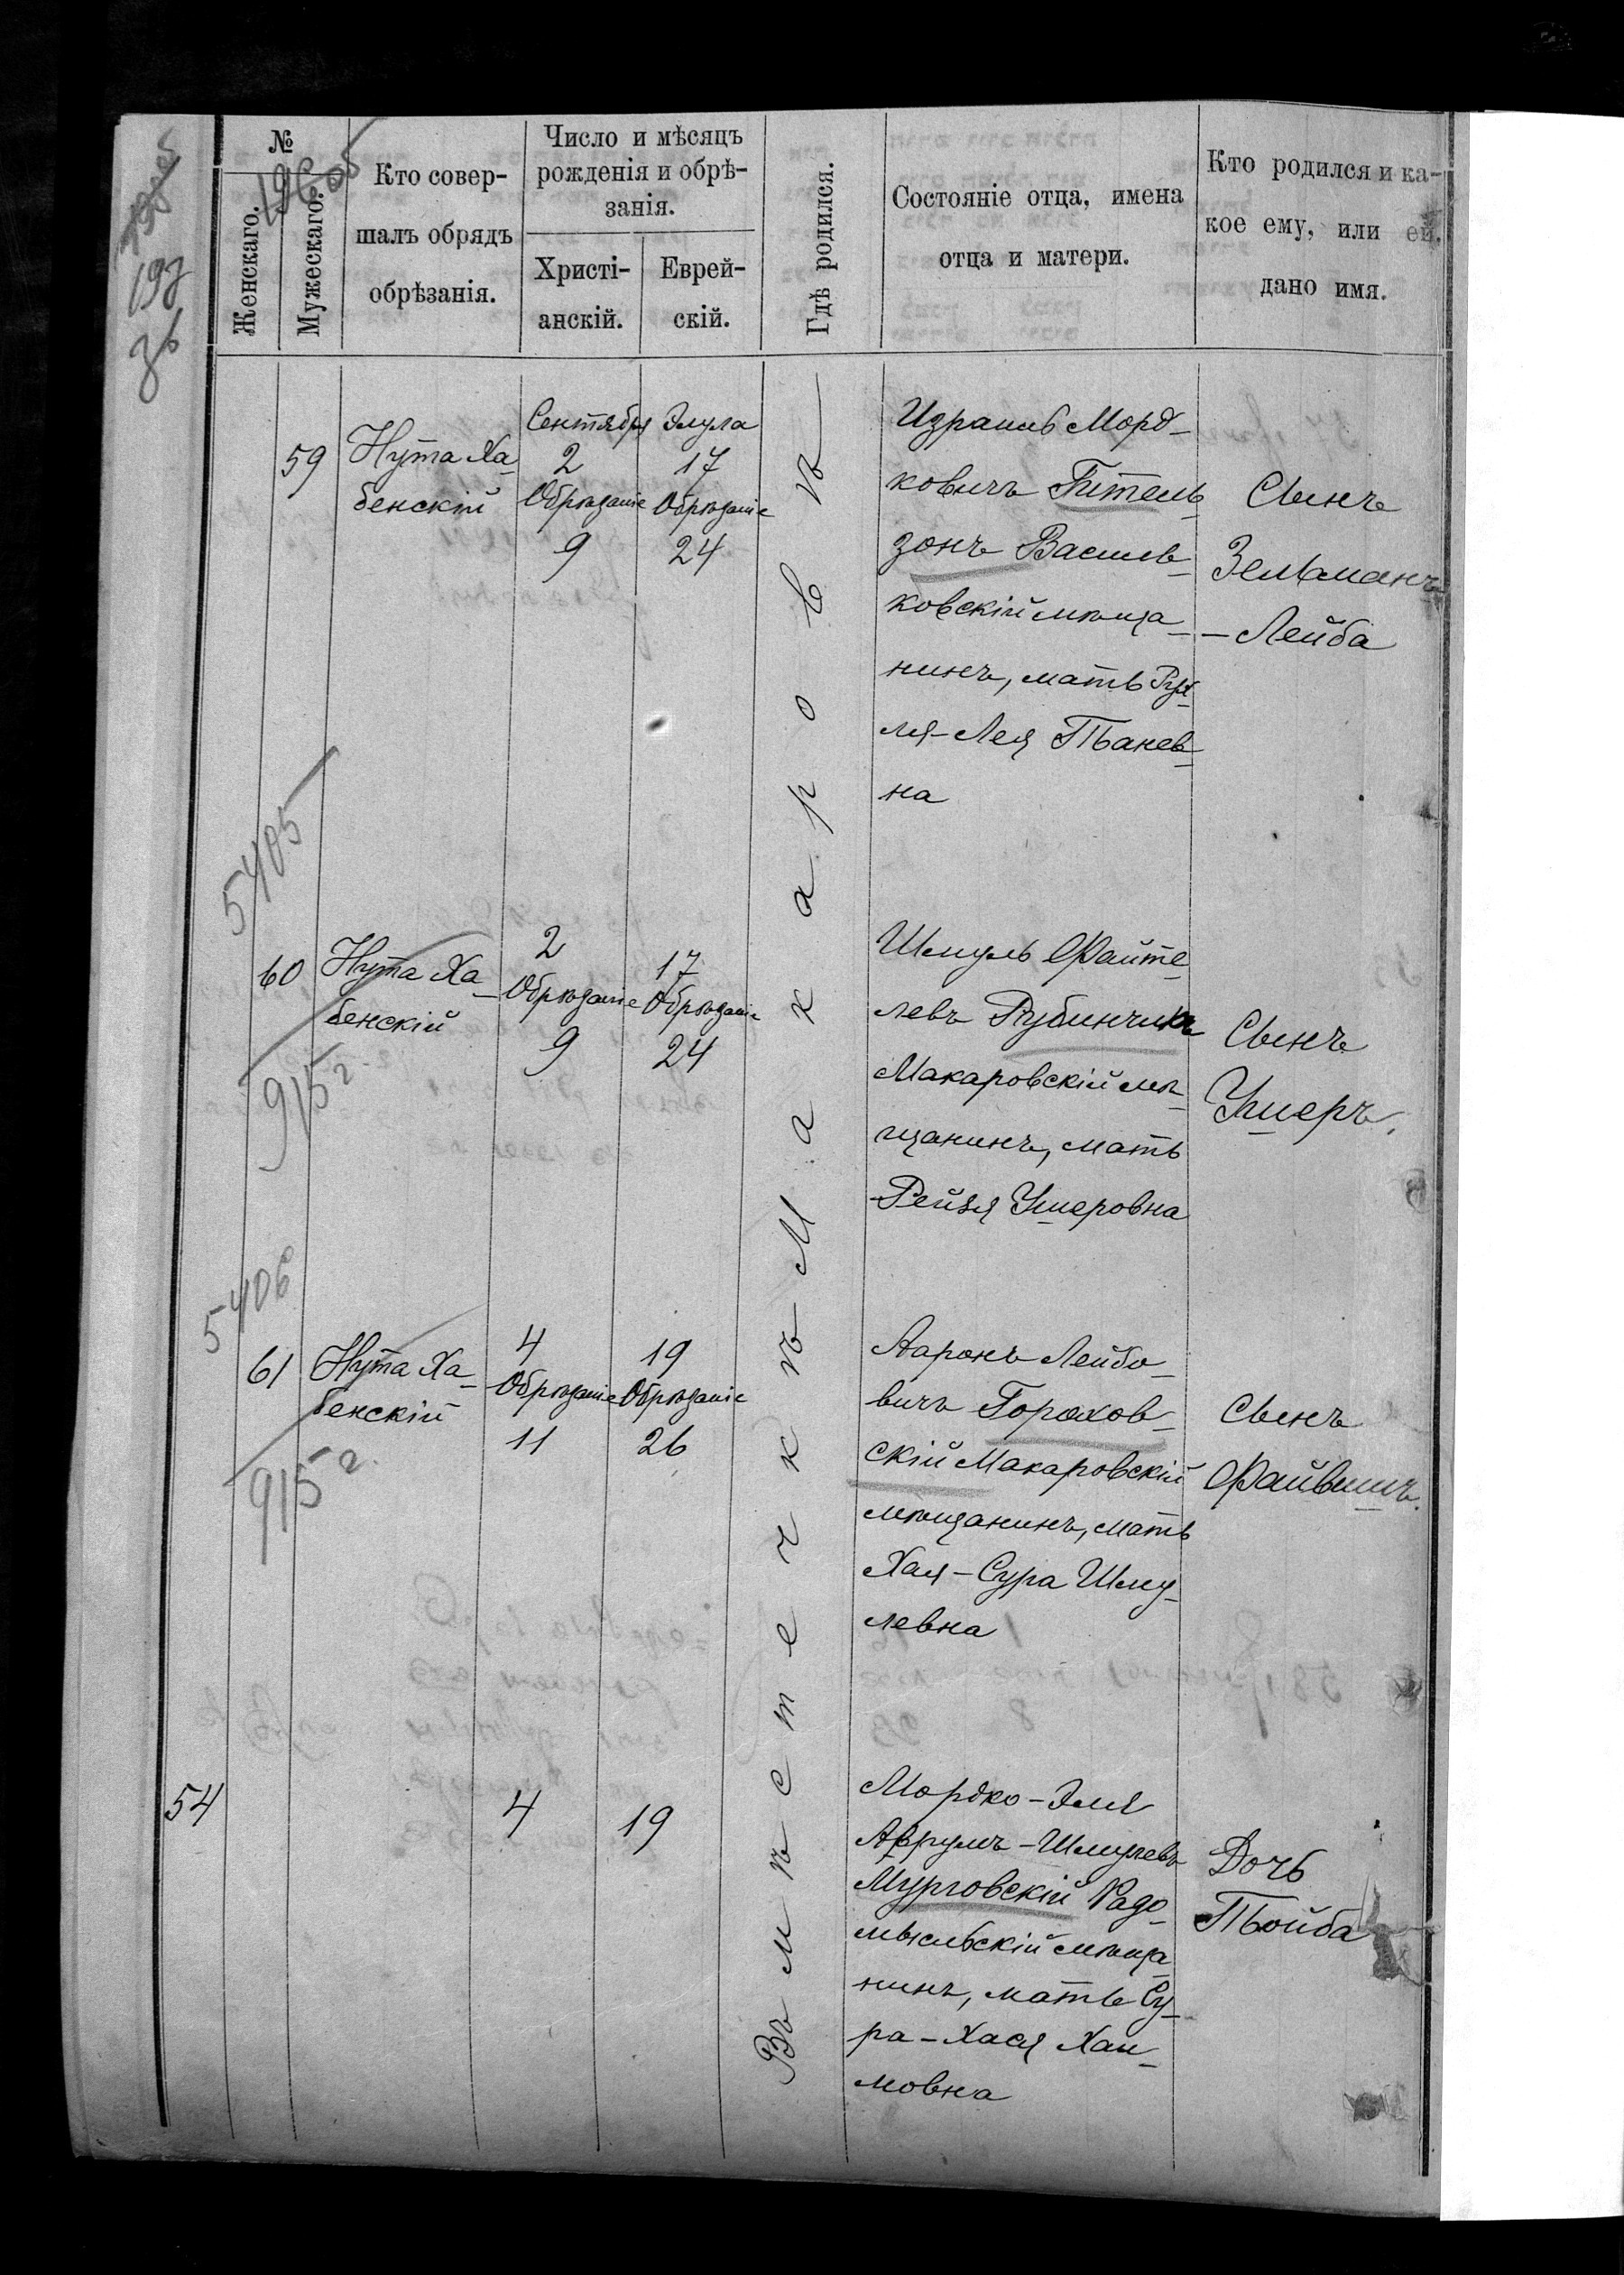 №
Женскаго.
Мужескаго.
Кто совер-
шалъ обрядъ
обрѣзанія.
Число и мѣсяцъ
рожденія и обрѣ-
занія.
Христі-
анскій.
Еврей-
скій.
Гдѣ родился.
Состояніе отца, имена
отца и матери.
Кто родился и ка-
кое ему, или ей,
дано имя.
Въ мѣстечкѣ Макаровѣ
59
Нута Ха-
бенскій
Сентября
2
Обрѣзаніе
9
Элула
17
Обрѣзаніе
24
Израиль Морд-
ковичъ Гитель-
зонъ Василь-
ковскій мѣща-
нинъ, мать Рух-
ля-Лея Пьанев-
на
Сынъ
Зельманъ
-Лейба
5405
60
Нута Ха-
бенскій
915 г.
2
Обрѣзаніе
9
17
Обрѣзаніе
24
Шмуль Файте-
левъ Рубинчикъ
Макаровскій мѣ-
щанинъ, мать
Рейзя Ушеровна
Сынъ
Ушеръ.
5406
61
Нута Ха-
бенскій
915 г.
4
Обрѣзаніе
11
19
Обрѣзаніе
26
Ааронъ Лейбо-
вичъ Горохов-
скій Макаровскій
мѣщанинъ, мать
Хая-Сура Шму-
левна
Сынъ
Файвишъ.
54
4
19
Мордко-Эля
Аврумъ-Шмулевъ
Мурговскій Радо-
мысльскій мѣща-
нинъ, мать Су-
ра-Хася Хаи-
мовна
Дочь
Тойба